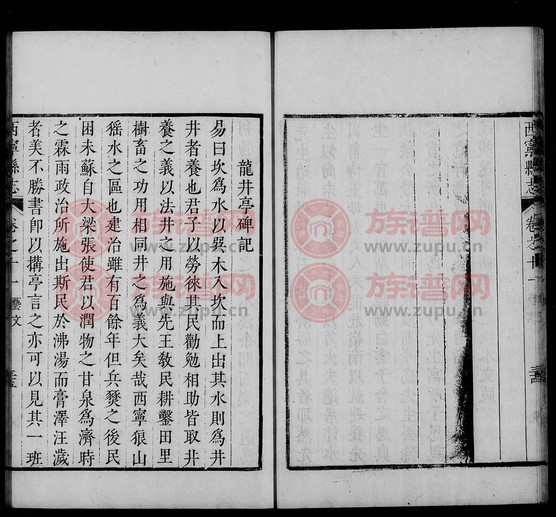 西寧縣志
卷之十一
龍井亭碑記
易曰坎為水以巽木入坎而上出其水則為井
井者養也君子以勞徠其民勸勉相助皆取井
養之義以法井之用施與先王敎民耕鑿田里
樹畜之功用相同井之為義大矣哉西寧狼山
猺水之區也建治雖有百餘年但兵燹之後民
困未蘇自大梁張使君以潤物之甘泉為濟時
之霖雨政治所施出斯民於沸湯而膏澤汪濊
者美不勝書即以搆亭言之亦可以見其一班
西寧縣志
卷之十一
藝文
族谱网
www.zupu.cn
族谱网
www.zupu.cn
族谱网
www.zupu.cn
族谱网
www.zupu.cn